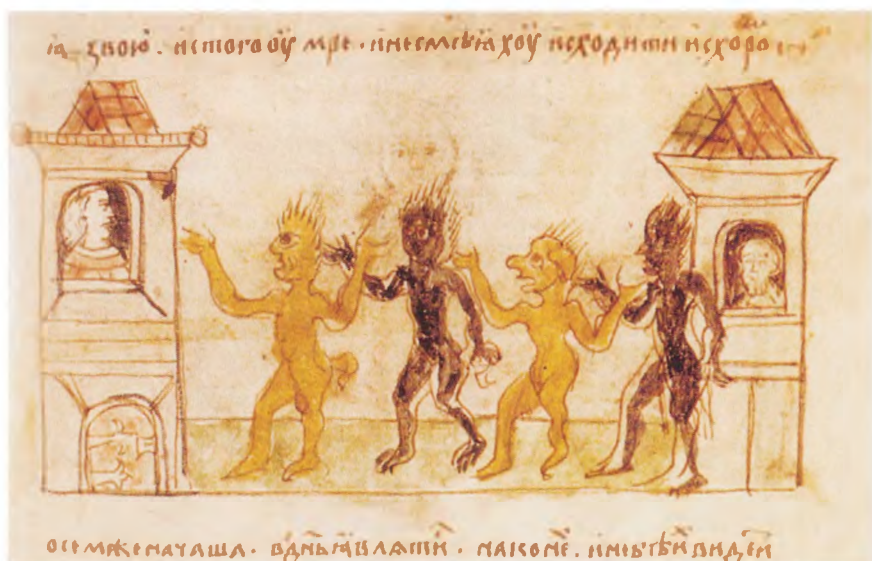 ꙗ свою. и с того оумре. и не смѣꙗхоу исходити исхоро
о семже начаша. в дн҃ь ꙗвлѧти. на коне. и не бѣ ви видѣти